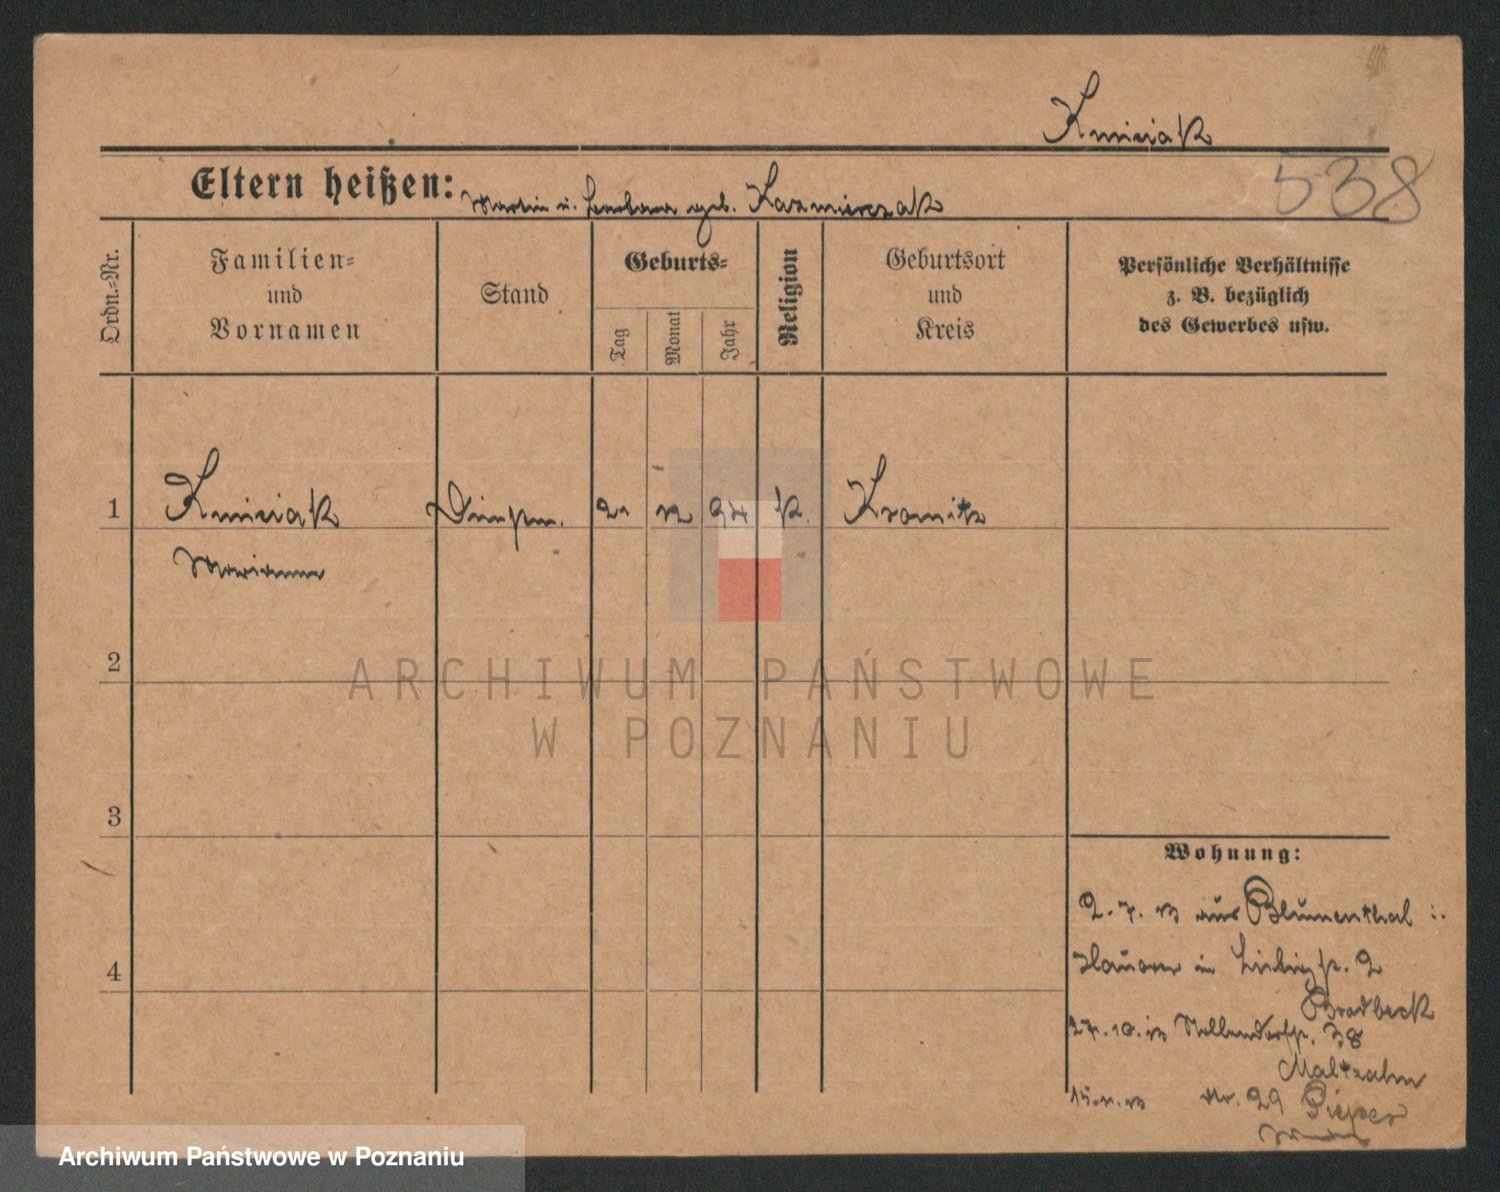 Kmiciak
538
Eltern heißen: Martin u. Barbara geb. Kazmierczak
Ordn.-Nr.
Familien-
und
Vornamen
Stand
Geburts-
Tag
Monat
Jahr
Religion
Geburtsort
und
Kreis
Persönliche Verhältnisse
z. B. bezüglich
des Gewerbes usw.
1 Kmiciak 2. 12 94 K. Kromitz
Marianna
2
3
4
Wohnung:
2. 7. 13 aus Blumenthal
in 2
Bradbeck
27. 10. 13 Nollendorfstr. 38
Maltzahn
15. 11. 13 Nr. 29 Pieper
ARCHIWUM PAŃSTWOWE
W POZNANIU
Archiwum Państwowe w Poznaniu